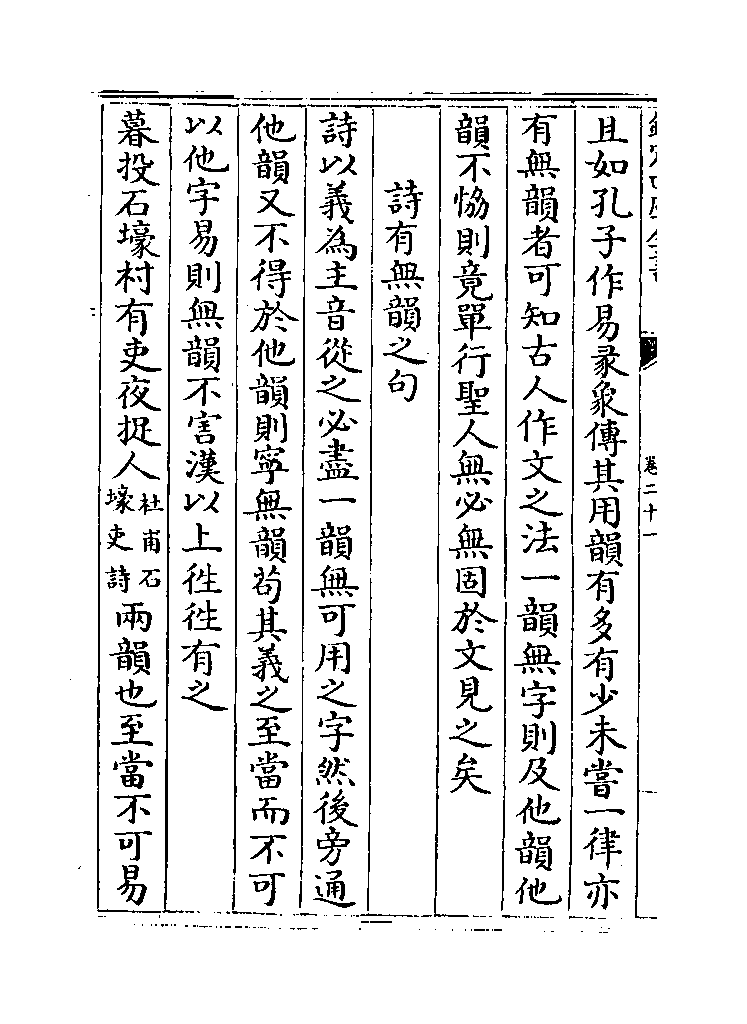 且如孔子作易彖象傳其用韻有多有少未嘗一律亦
有無韻者可知古人作文之法一韻無字則及他韻他
韻不恊則竟單行聖人無必無固於文見之矣
詩有無韻之句
詩以義為主音從之必盡一韻無可用之字然後旁通
他韻又不得於他韻則寧無韻茍其義之至當而不可
以他字易則無韻不害漢以上徃徃有之
暮投石壕村有吏夜捉人杜甫石壕吏詩兩韻也至當不可易
卷二十一